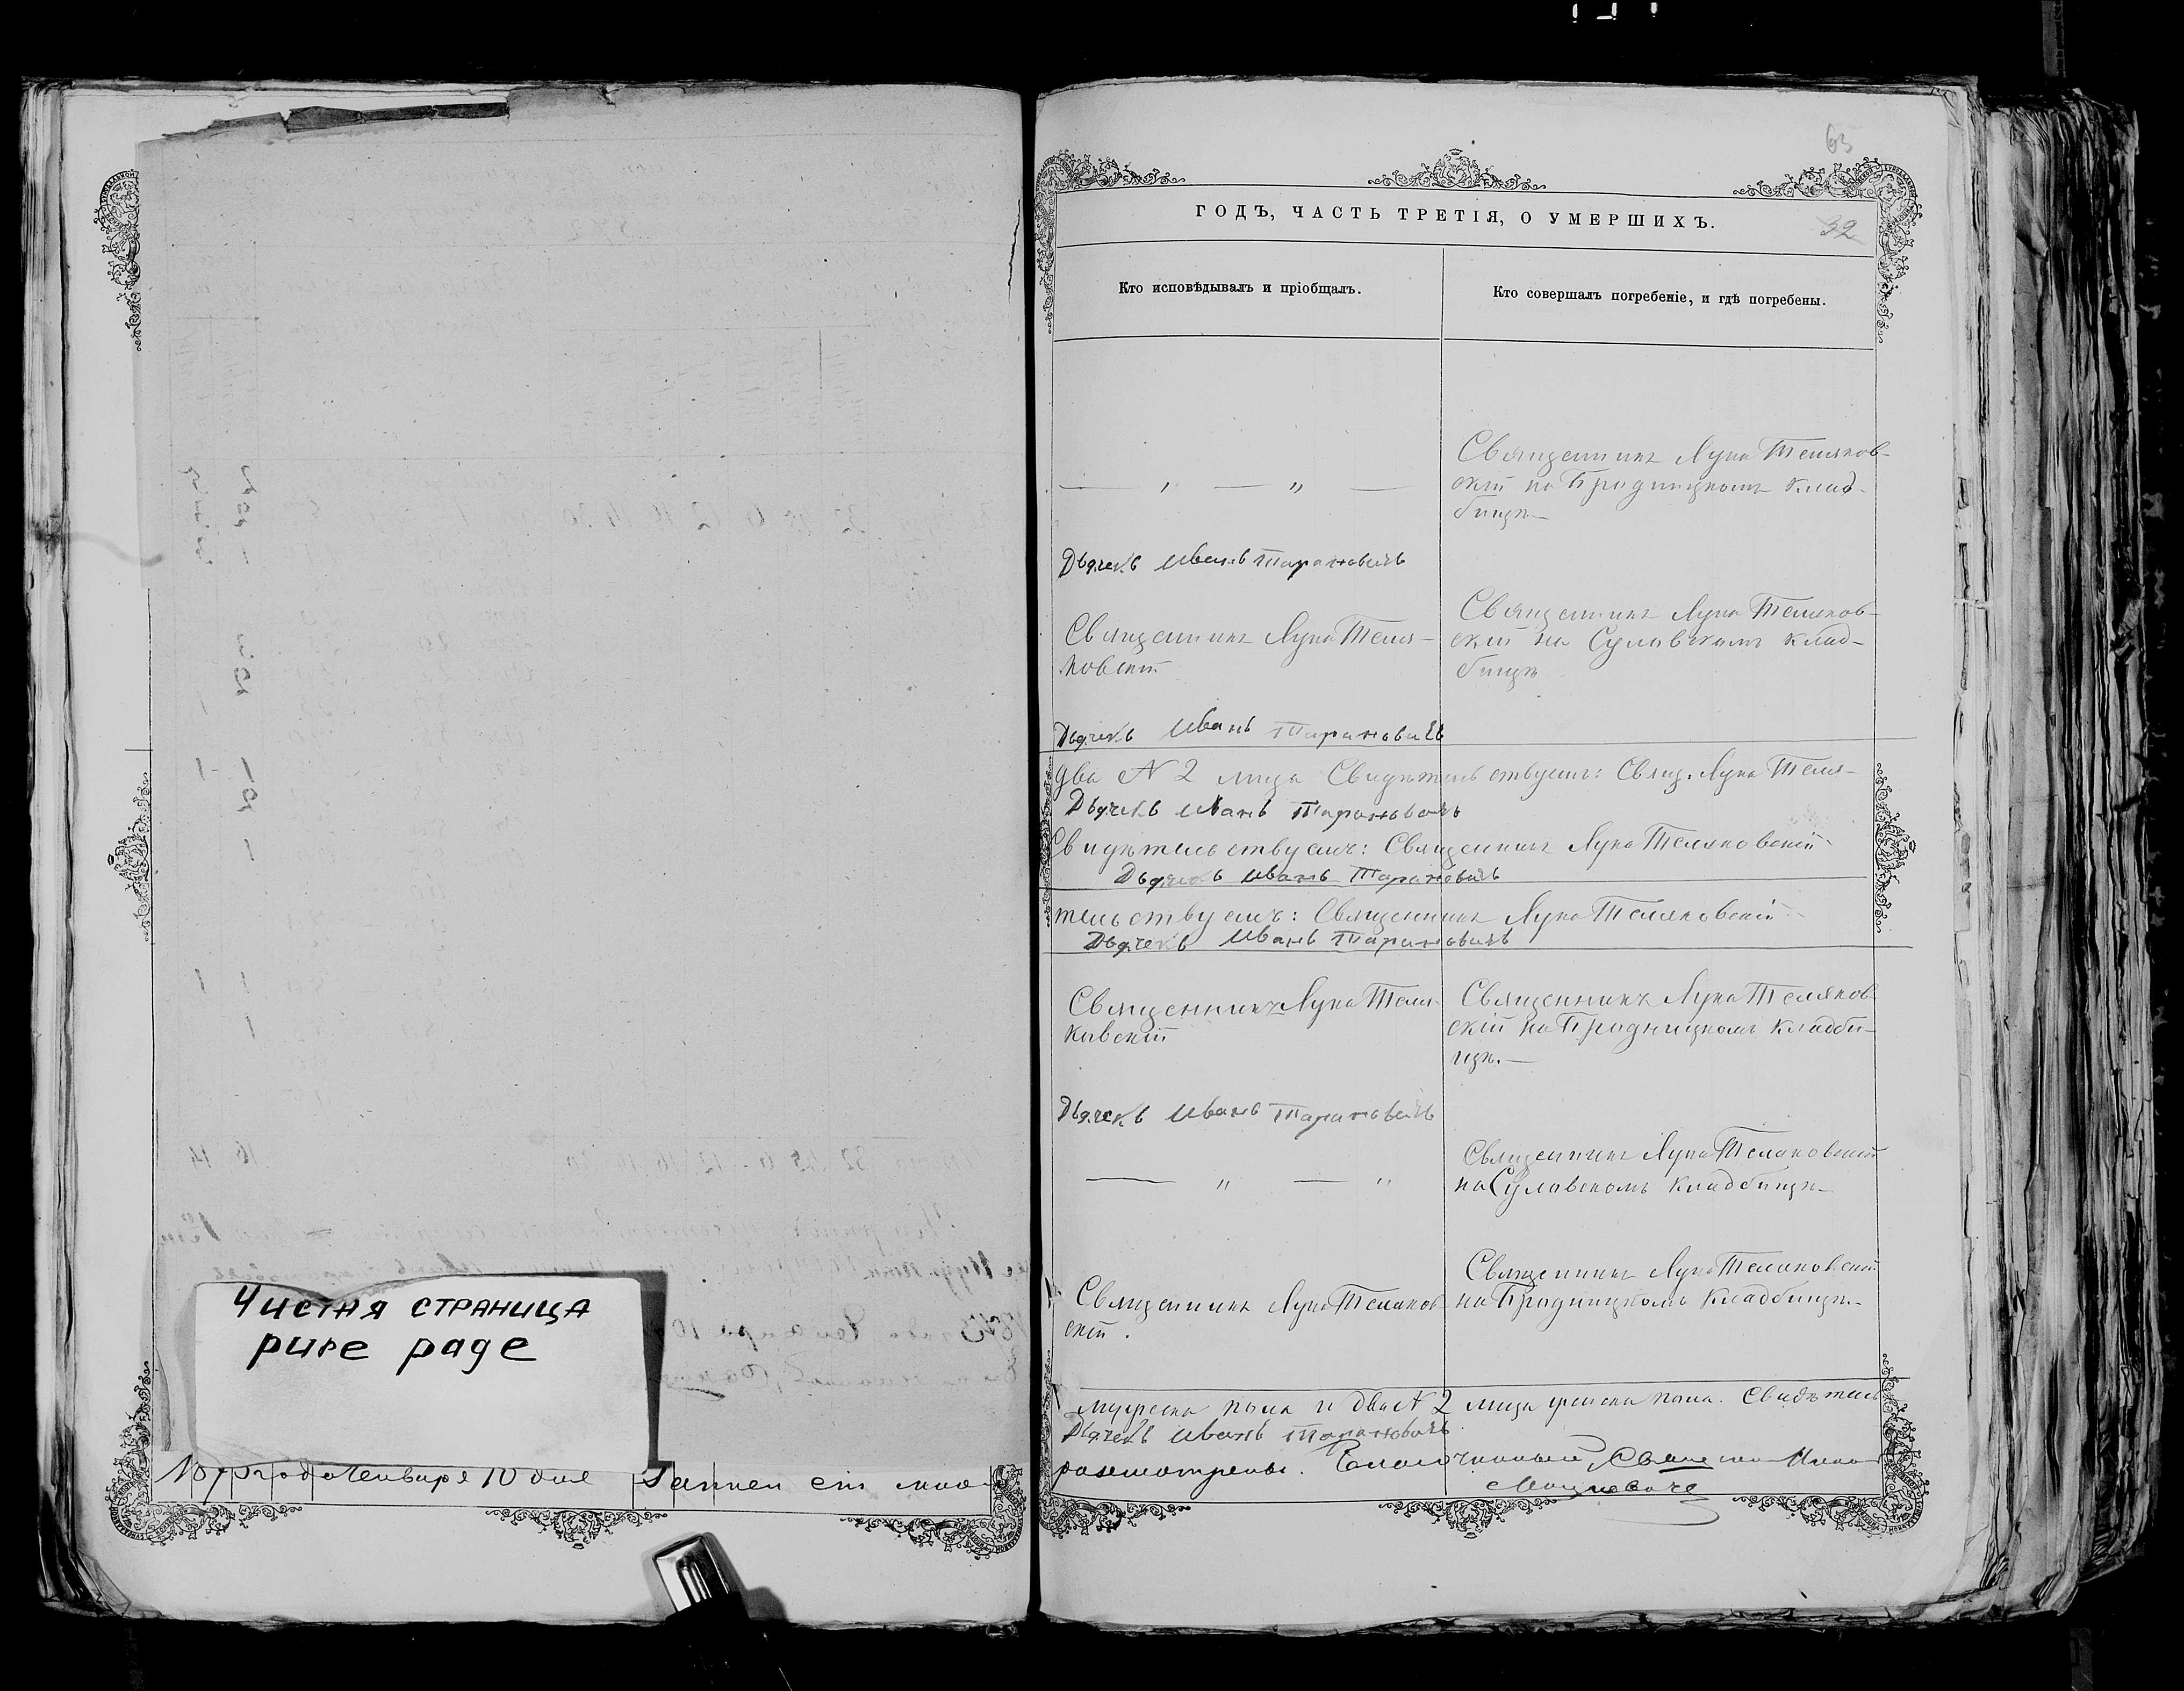 63
ГОДЪ, ЧАСТЬ ТРЕТІЯ, О УМЕРШИХЪ.
32
Кто исповѣдывалъ и пріобщалъ.
Кто совершалъ погребеніе, и гдѣ погребены.
Священникъ Лука Теляков-
скій на Бродницкомъ клад-
бищѣ
Дьячекъ Иванъ Тарановичъ
Священникъ Лука Теля-
ковскій
Священникъ Лука Теляков-
скій на Суловскомъ клад-
бищѣ
Дьячекъ Иванъ Тарановичъ
два № 2 лица Свидѣтельствуемъ: Свящ. Лука Теля-
Дьячекъ Иванъ Тарановичъ
Свидѣтельствуемъ: Священникъ Лука Теляковскій
Дьячекъ Иванъ Тарановичъ
тельствуемъ: Священникъ Лука Теляковскій
Дьячекъ Иванъ Тарановичъ
Священникъ Лука Теля-
ковскій
Священникъ Лука Теляков-
скій на Бродницкомъ кладби-
щѣ.
Дьячекъ Иванъ Тарановичъ
Священникъ Лука Теляковскій
на Суловскомъ кладбищѣ
Священникъ Лука Теляков-
скій.
Священникъ Лука Теляковскій
на Бродницкомъ кладбищѣ.
мужеска пола и два № 2 лица женска пола. Свидѣтель
Дьячекъ Иванъ Тарановичъ
разсмотрены. Благочинный, Священ
Чистая страница
pure page
года Генваря 10 дня